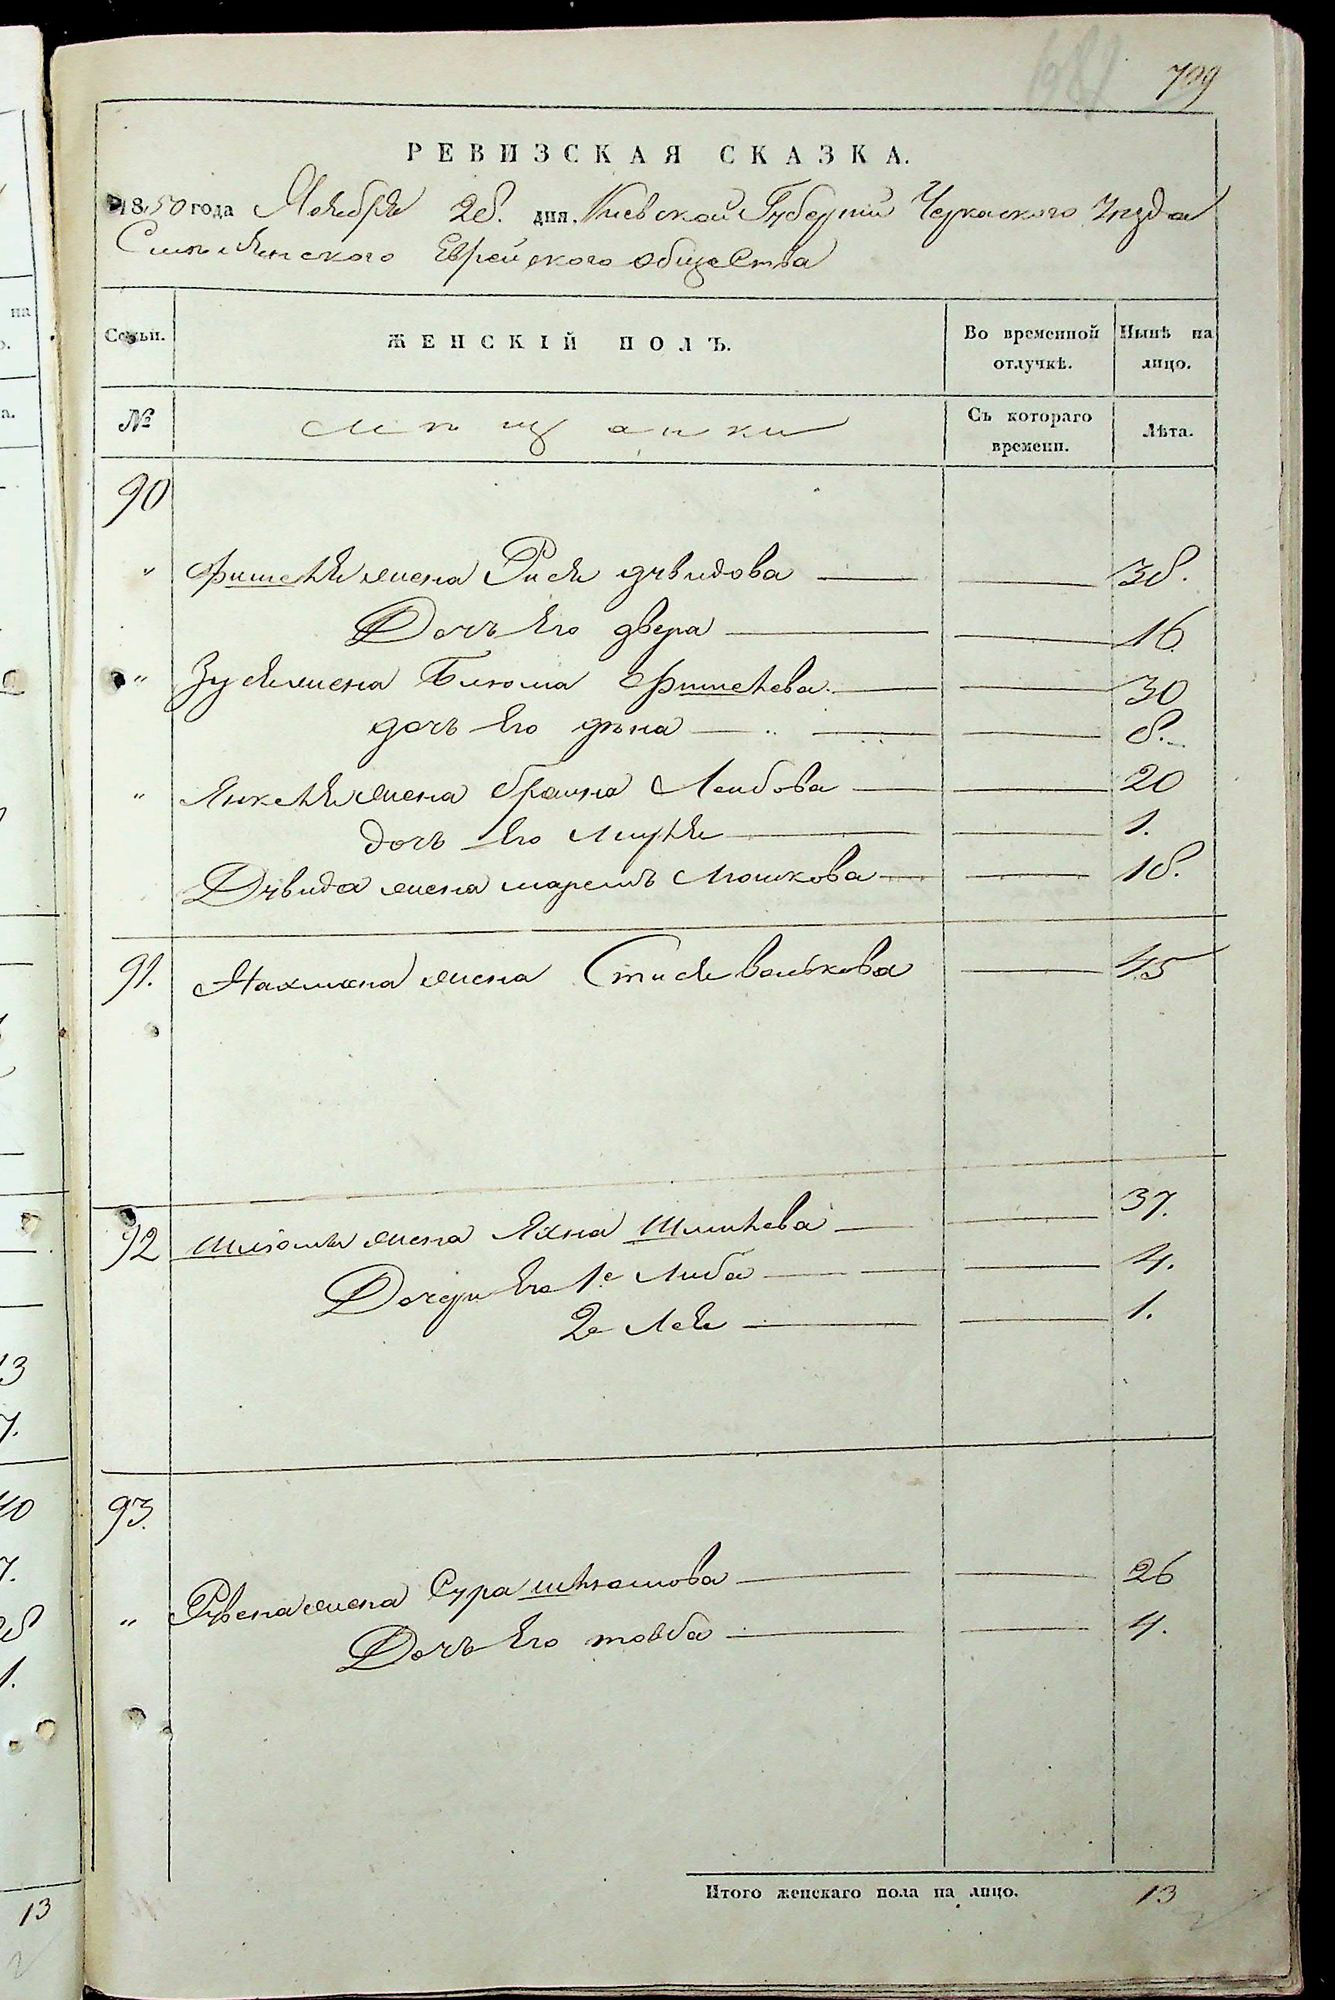 681
799
РЕВИЗСКАЯ СКАЗКА.
1850 года Декабря 28. дня. Киевской Губерніи Черкаского Уезда
Смѣлянского Еврейского общества
Семьи. ЖЕНСКІЙ ПОЛЪ. Во временной отлучкѣ. Нынѣ на лицо.
№ мѣщанки Съ котораго времени. Лѣта.
90
" Фишеля жена Рися двидова 38.
Дочь Его двера 16
" Зуся жена Блюма Фишелева 30
дочь Его 8.
" Янкеля жена браина Лейбова 20
дочь Его 1.
Двида жена Мошкова 18.
91. Нахмана жена Стися волькова 45
92 жена Яхна 37.
Дочери Его 1е Либа 4.
2е Лея 1.
93.
" жена Сура 26
Дочь Его товба 4.
Итого женскаго пола на лицо. 13
13